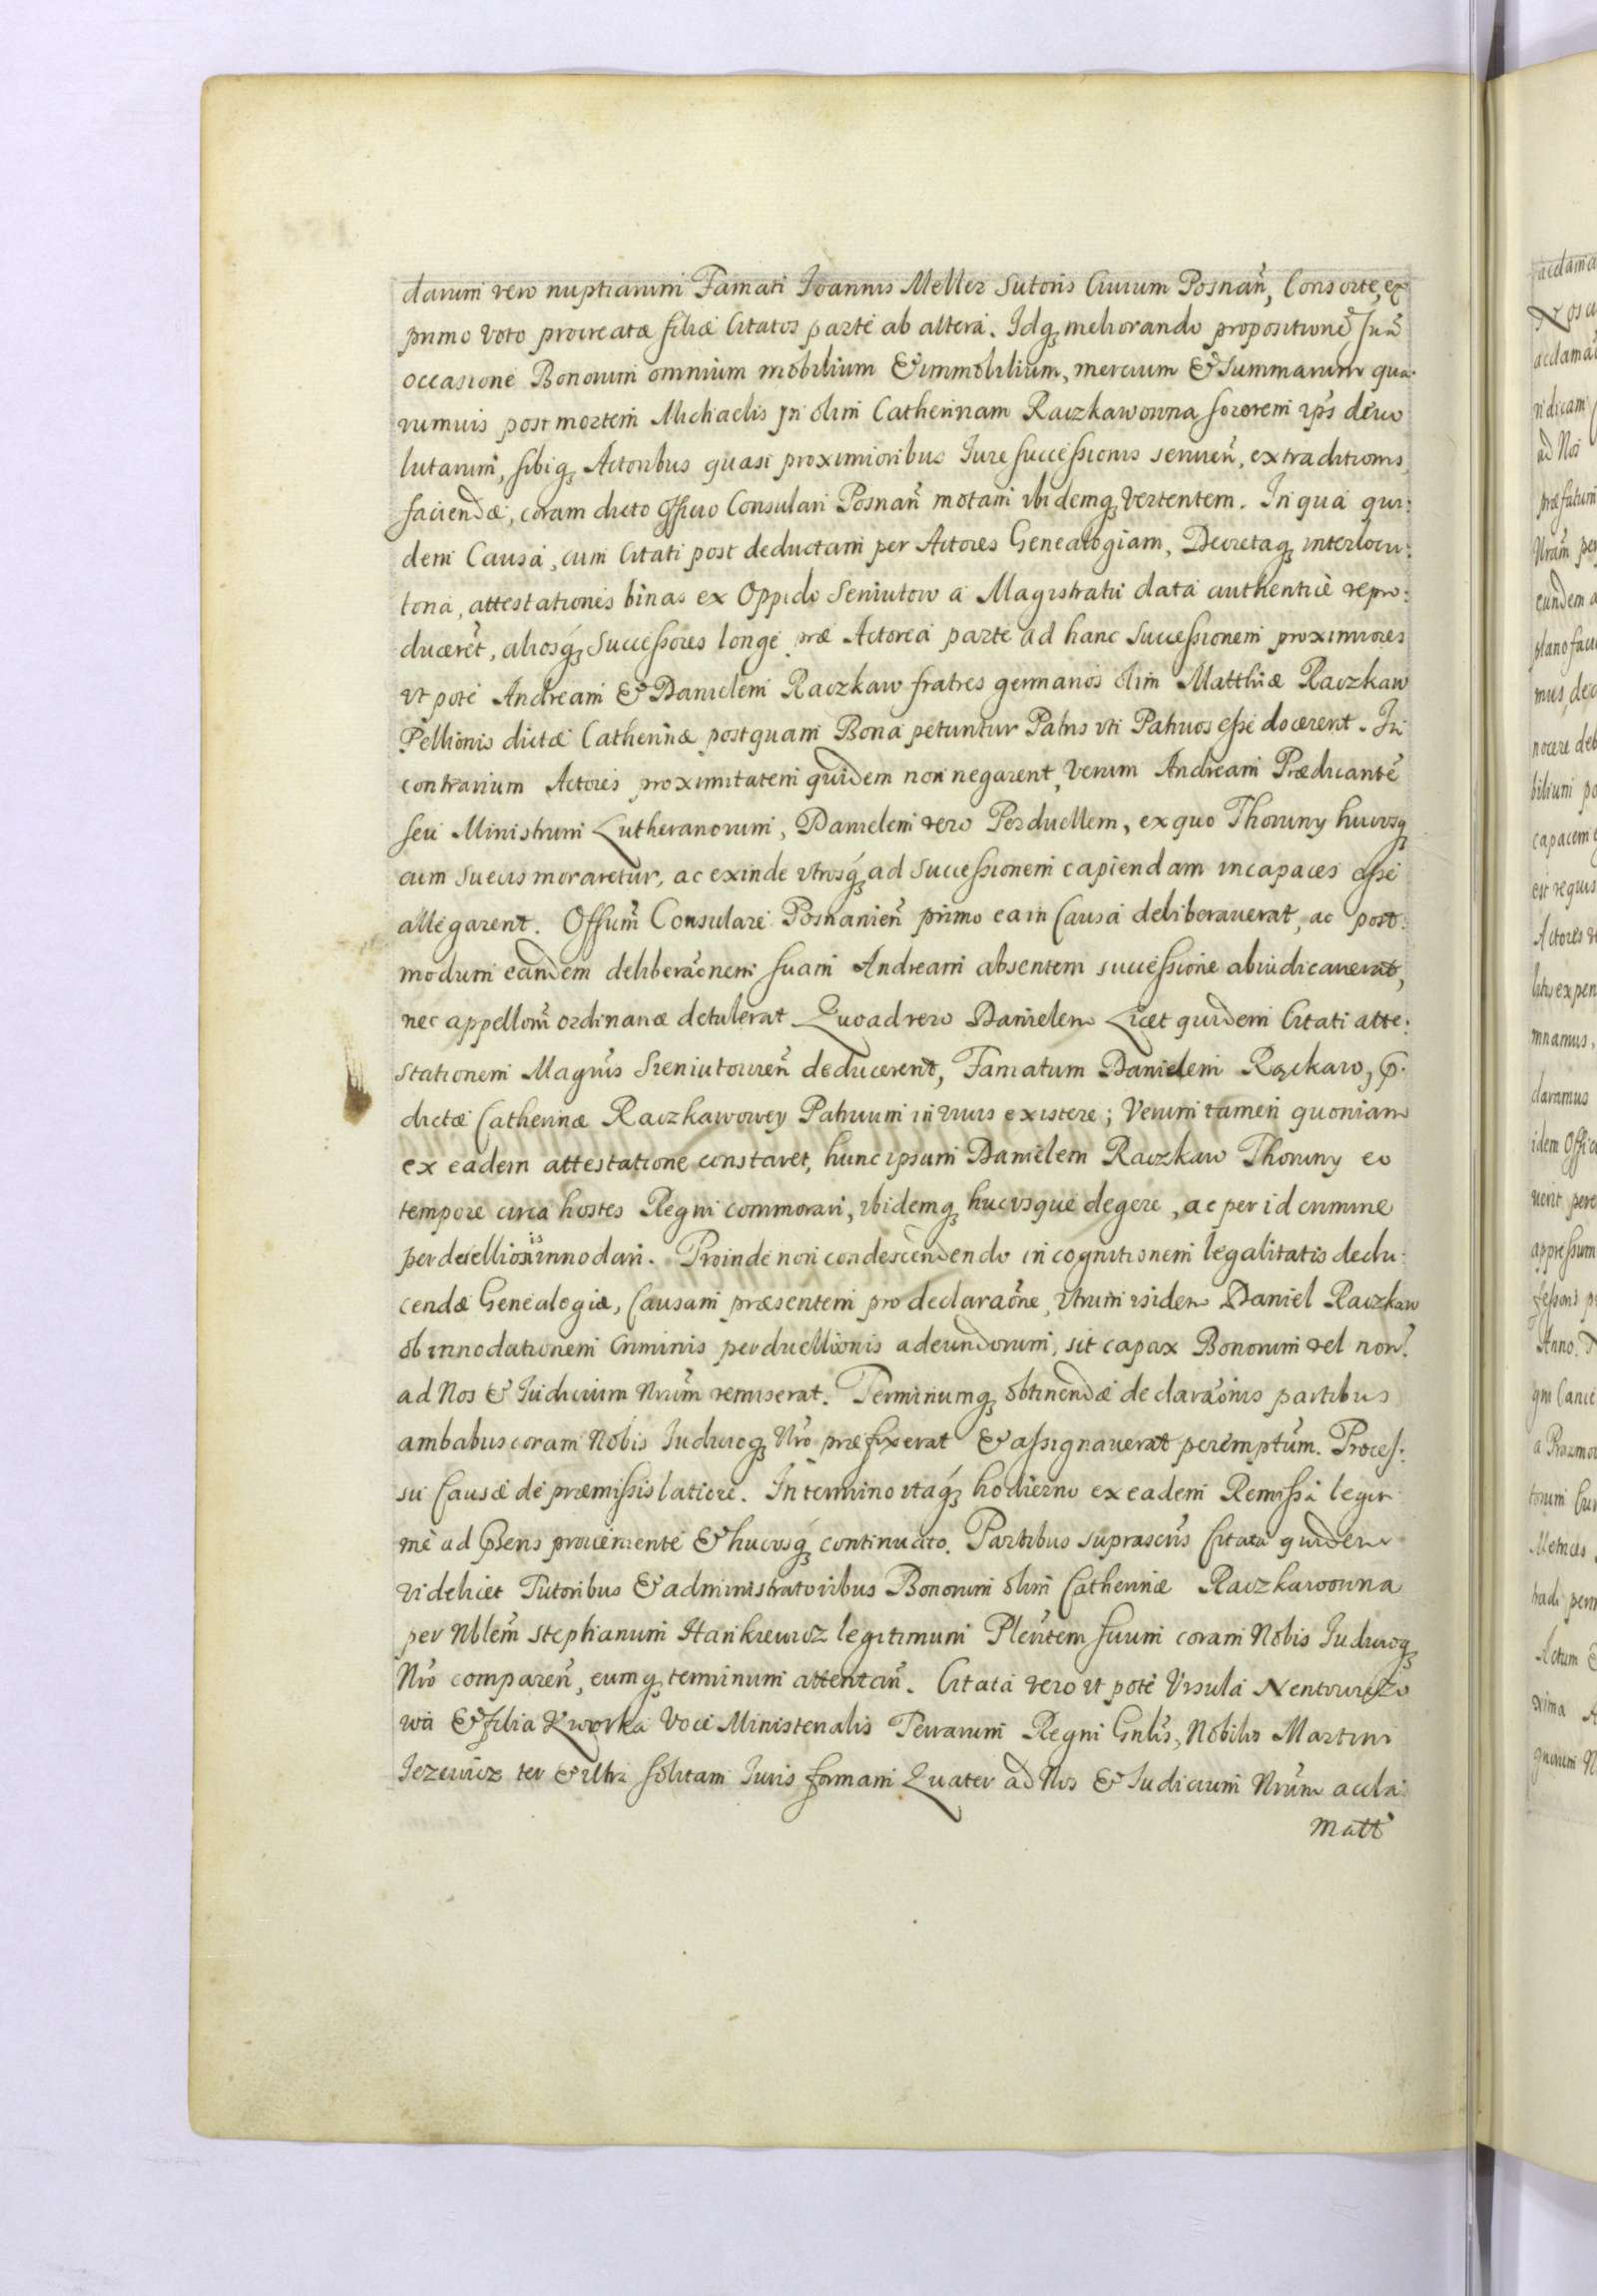 darum vero nuptiarum Famati Joannis Meller Sutoris Civium Posnan̄, Consorte, ex
primo voto procreatæ filiæ Citatos parte ab altera. Idq; meliorando propositionē suā
occasione Bonorum omnium mobilium & immobilium, mercium & Summarum qua:
rumvis post mortem Michaelis In olim Catherinam Raczkawowna sororem ips devo
lutarum, sibiq; Actoribus quasi proximioribus Jure successionis servien̄, extraditionis
faciendæ, coram dicto Officio Consulari Posnan̄ motam ibidemq; vertentem. In qua qui:
dem Causa, cum Citati post deductam per Actores Genealogiam, Decretaq; interlocu:
toria, attestationes binas ex Oppido Seniutow a Magistratu data authentice repro:
ducerēt, aliosq; Successores longe præ Actorea parte ad hanc Successionem proximiores
ut pote Andream & Danielem Raczkaw fratres germanos olim Matthiæ Raczkaw
Pellionis dictæ Catherinæ postquam Bona petuntur Patris uti Patruos esse docerent. In
contrarium Actores proximitatem quidem non negarent, Verum Andream Prædicantē
seu Ministrum Lutheranorum, Danielem vero Perduellem, ex quo Thoruny hucusq;
cum Suecis moraretur, ac exinde utrosq; ad Successionem capiendam incapaces esse
allegarent. Offium̄ Consulare Posnanien̄ primo ea in Causa deliberaverat, ac post:
modum eandem deliberāonem suam Andream absentem successione abiudicaverat,
nec appellom̄ ordinariæ detulerat. Quoad vero Danielem Licet quidem Citati atte:
stationem Magrūs Sieniutowien̄ deducerent, Famatum Danielem Raczkaw, p.
dictæ Catherinæ Raczkawowey Patruum in vivis existere; Verum tamen quoniam
ex eadem attestatione constaret, hunc ipsum Danielem Raczkaw Thoruny eo
tempore circa hostes Regni commorari, ibidemq; hucusque degere, ac per id crimine
perduellionis innodari. Proinde non condescendendo in cognitionem legalitatis dedu:
cendæ Genealogiæ, Causam præsentem pro declaraōne, Utrum isidem Daniel Raczkaw
ob innodationem Criminis perduellionis adeundorum, sit capax Bonorum vel non?
ad Nos & Judicium Nrūm remiserat. Terminumq; obtinendæ declaraōnis partibus
ambabus coram Nobis Judicioq; Nrō præfixerat & assignaverat peremptūm. Proces:
su Causæ de præmissis latiore. In termino itaq; hodierno ex eadem Remissa legit
me ad Pens proveniente & hucusq; continuato. Partibus suprascrīs Citata quidem
videlicet Tutoribus & administratoribus Bonorum olim Catherinæ Raczkawowna
per Nblēm Stephanum Hankiewicz legitimum Plenītem suum coram Nobis Judicioq;
Nrō comparen̄, eumq; terminum attentan̄. Citata vero ut pote Ursula Nentwiczo
wa & filia Kworka Voce Ministerialis Terrarum Regni Gnlīs, Nobilis Martini
Jezewicz ter & ultra solitam Juris formam Quater ad Nos & Judicium Nrūm accla
matt
acdama
Nos
acdamā
ridicam
ad Nos
præfatum
Nram per
eundem a
plano
mus, dec
nocere deb
bilium po
capacem
est requis
Actores
expen
mnamus.
daramus
idem Offic
appressum
Anno
gni Canc
a
torum
Actum
xima